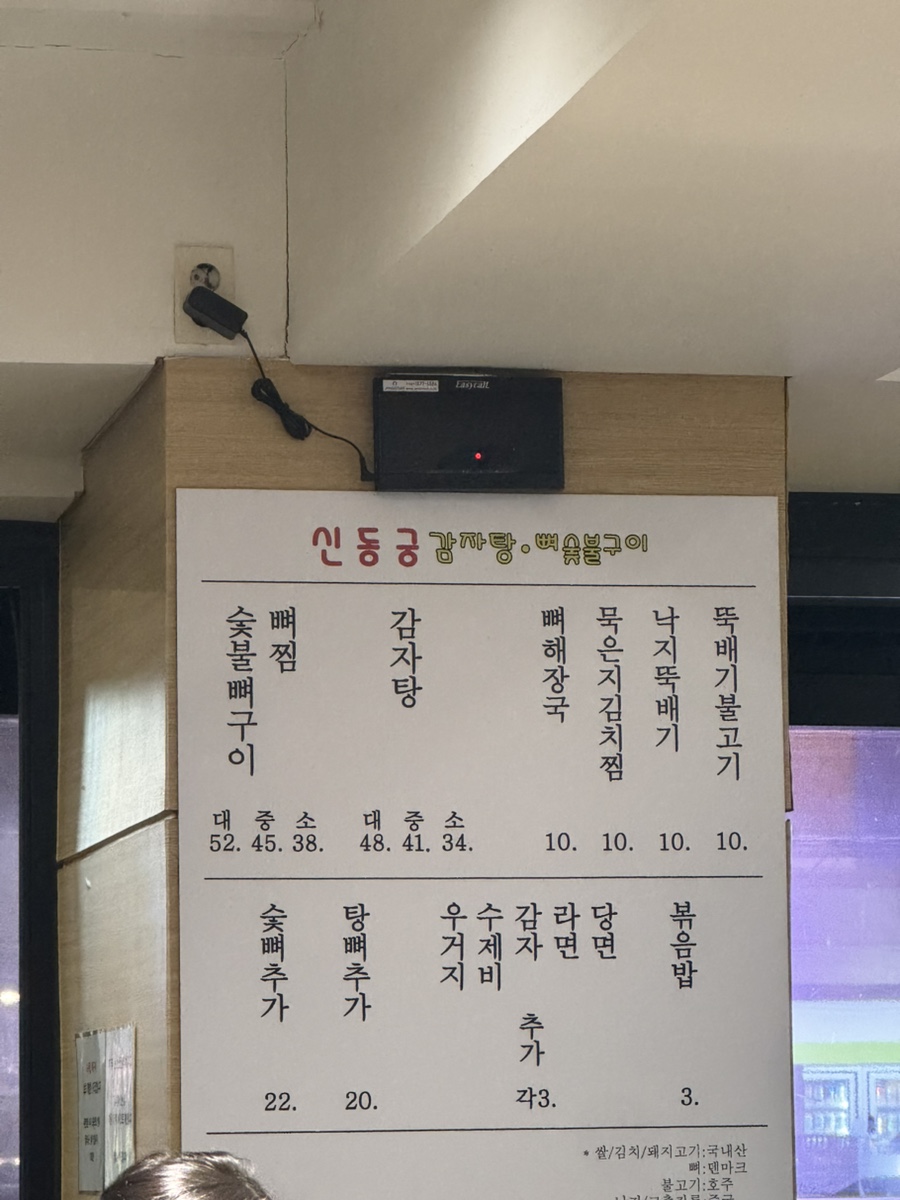 Easycall
신동궁 감자탕·뼈숯불구이
숯불뼈구이
뼈찜
대 중 소
52. 45. 38.
감자탕
대 중 소
48. 41. 34.
뼈해장국
10.
묵은지김치찜
10.
낙지뚝배기
10.
뚝배기불고기
10.
숯뼈추가
22.
탕뼈추가
20.
우거지
수제비
감자
라면
당면
추가
각3.
볶음밥
3.
* 쌀/김치/돼지고기:국내산
뼈:덴마크
불고기:호주